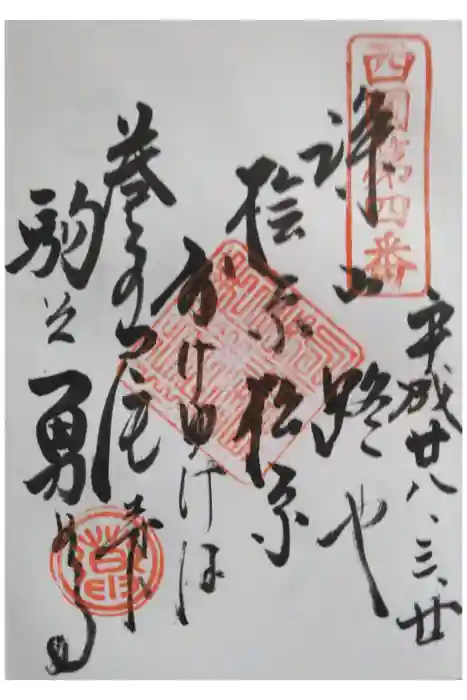 西國第四番
平成廿八、三、廿
深山路や
桧原松原
わけゆけは
巻の尾寺
駒そ勇める